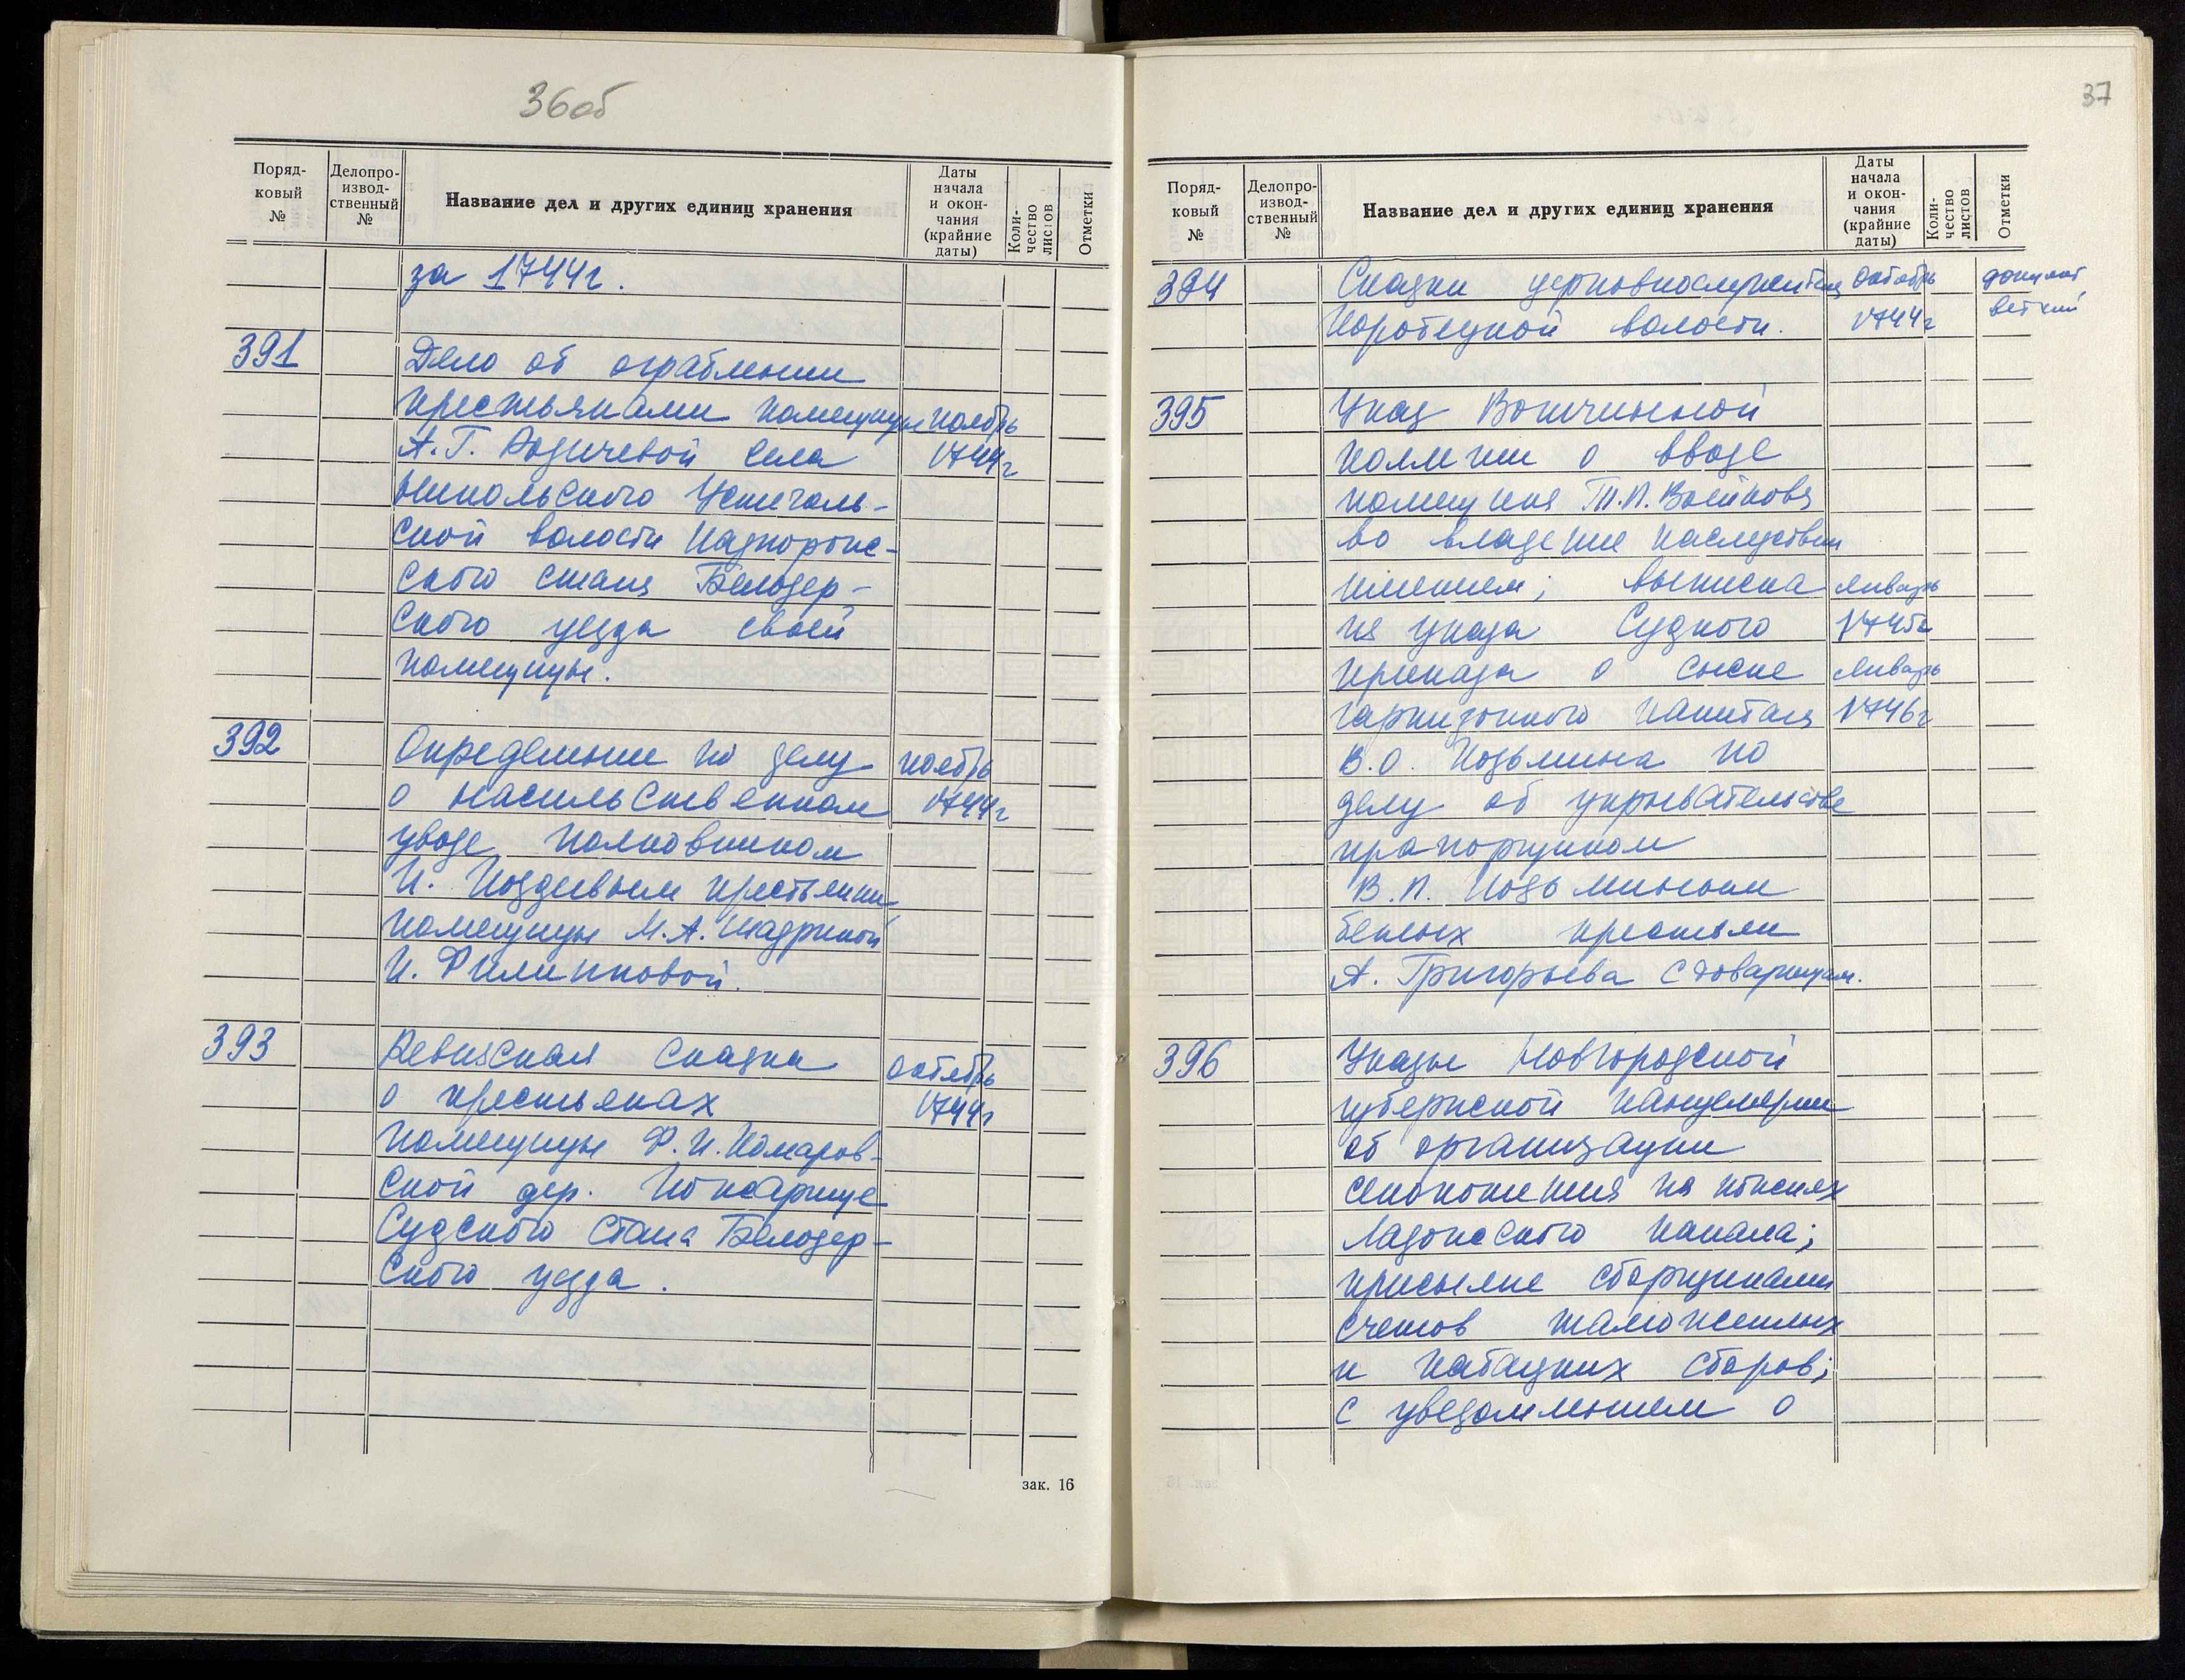 36об
Поряд-
ковый
№
Делопро-
извод-
ственный
№
Название дел и других единиц хранения
Даты
начала
и окон-
чания
(крайние
даты)
Коли-
чество
листов
Отметки
за 1744г.
391
Дело об ограблении
крестьянами помещицы ноябрь
А.Г. Родичевой села 1744г
Никольского
ской волости Надпорож-
ского стана Белозер-
ского уезда своей
помещицы.
392
Определение по делу ноябрь
о насильственном 1744г
уводе полковником
И. Поздеевым крестьянки
помещицы М.А. Шадриной
И. Филипповой.
393
Ревизская сказка октябрь
о крестьянах 1744г
помещицы Ф.И. Комаров-
ской дер.
Судского стана Белозер-
ского уезда.
зак. 16
37
Поряд-
ковый
№
Делопро-
извод-
ственный
№
Название дел и других единиц хранения
Даты
начала
и окон-
чания
(крайние
даты)
Коли-
чество
листов
Отметки
394
Сказки церковнослужителей октябрь
волости. 1744г
ветхий
395
Указ Вотчинной
коллегии о вводе
помещика
во владение наследствен
имением; выписка январь
из указа Судного 1745г
приказа о сыске январь
гарнизонного капитана 1746г
В.О. Козьмина по
делу об укрывательстве
прапорщиком
В.П. Козьминым
беглых крестьян
А. Григорьева с товарищам.
396
Указы Новгородской
губернской канцелярии
об организации
сенокошения на
Ладожского канала;
присылке сборщиками
счетов таможенных
и кабацких сборов;
с уведомлением о